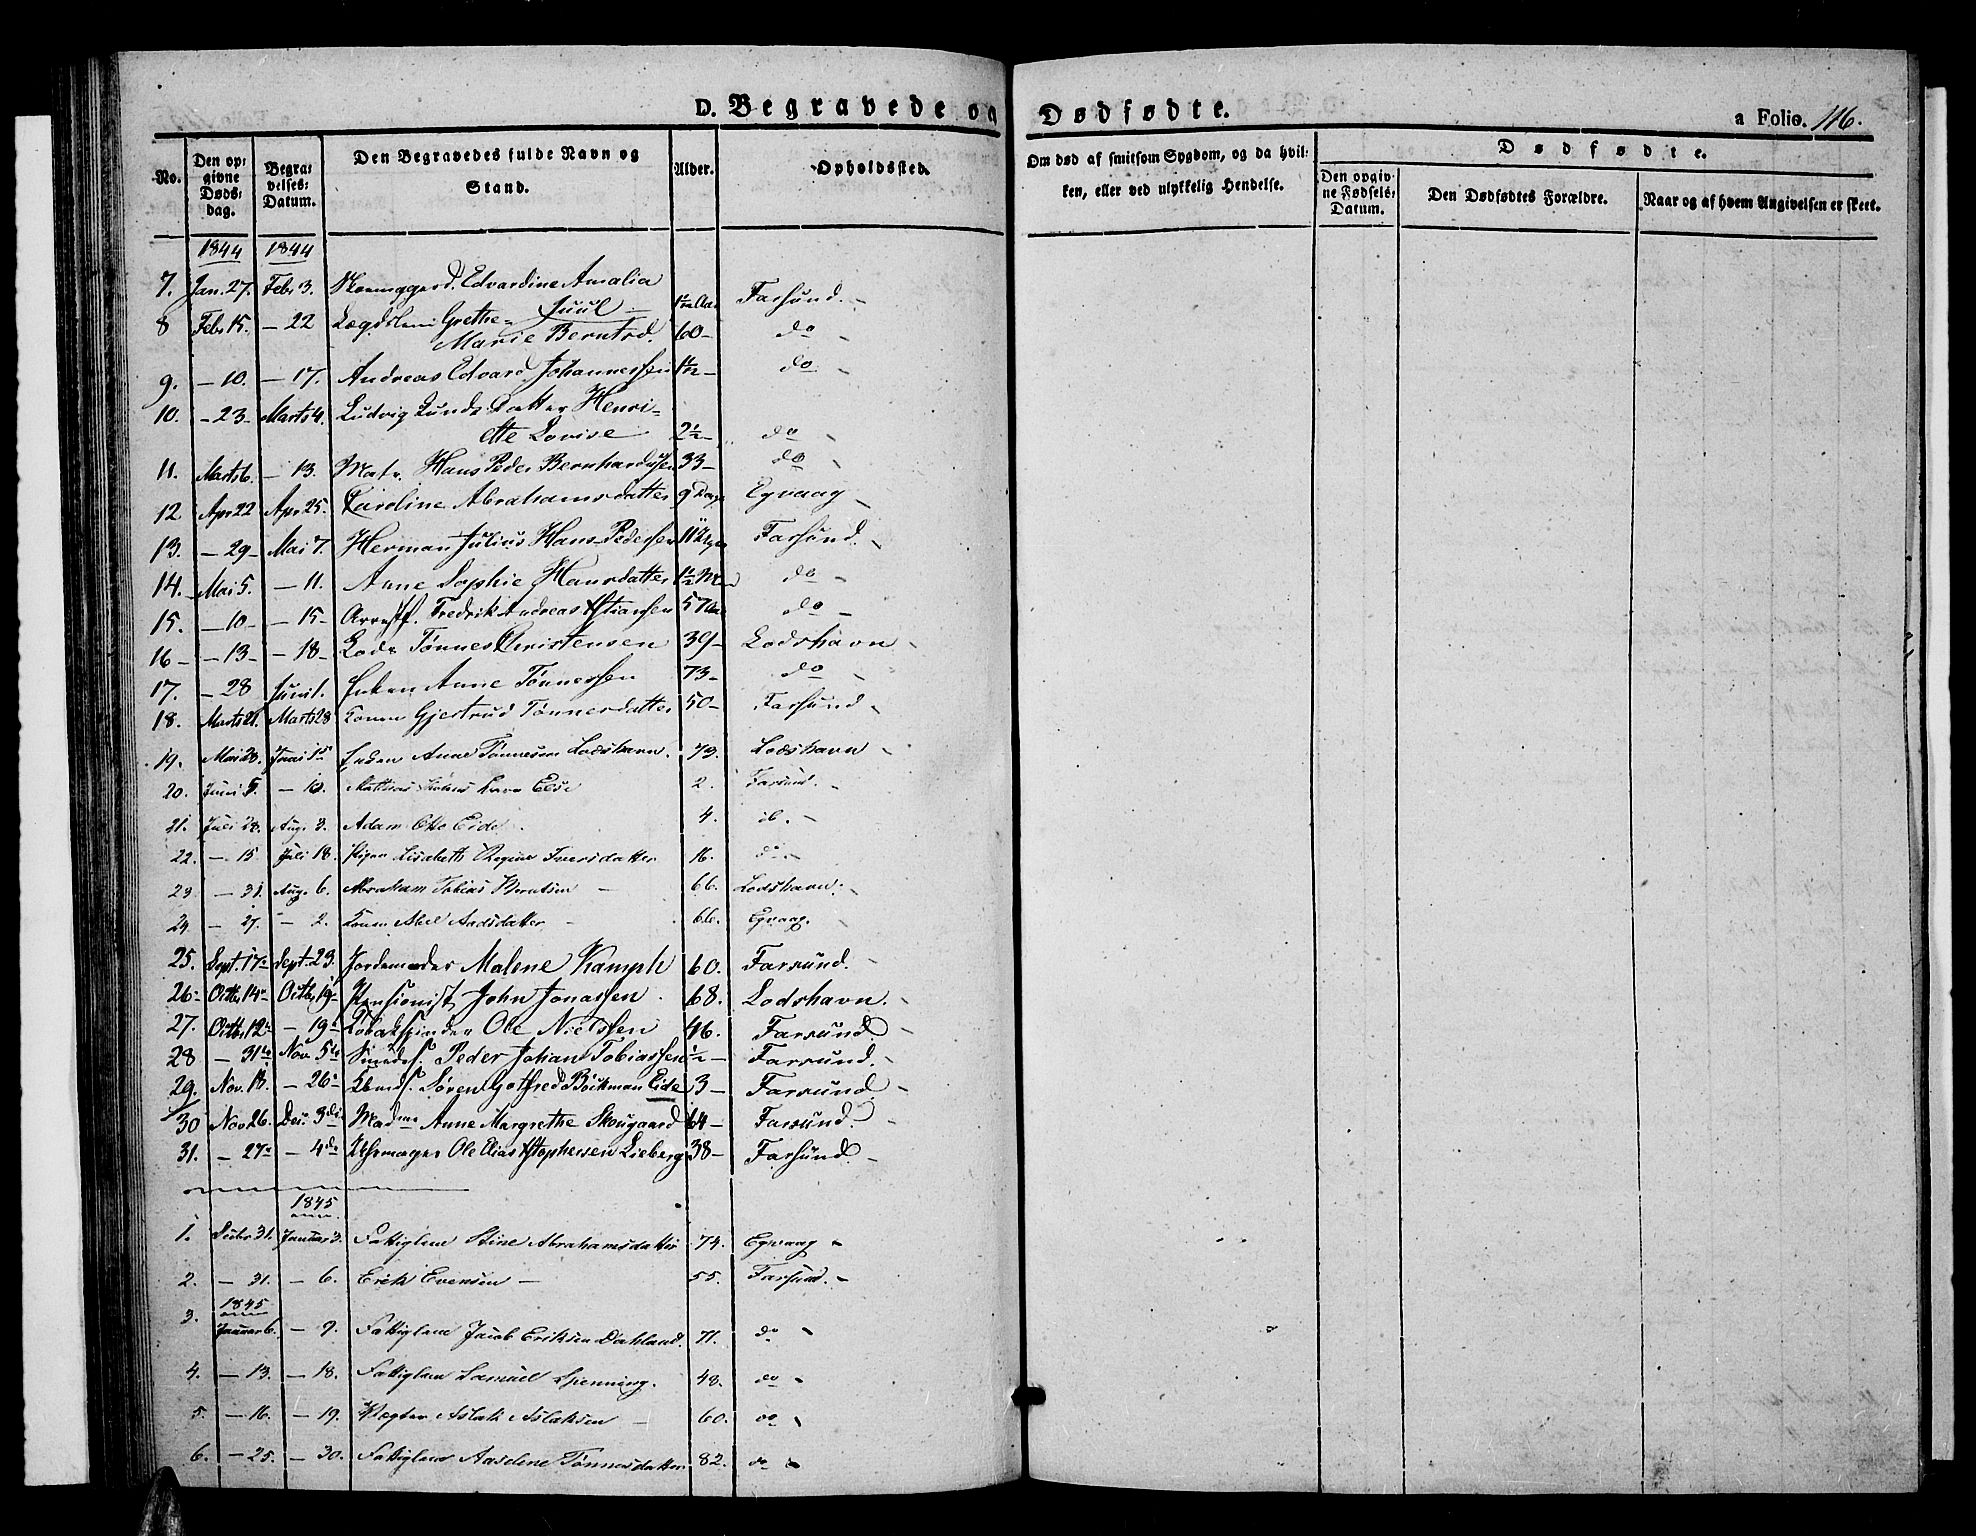 D. Begravede og Dødfødte. a Folio. 116.
No. Den opgivne Dødsdag. Begravelses-Datum. Den Begravedes fulde Navn og Stand. Alder. Opholdssted. Om død af smitsom Sygdom, og da hvilken, eller ved ulykkelig Hendelse. Dødfødte. Den opgivne Fødsels-Datum. Den Dødfødtes Forældre. Naar og af hvem Angivelsen er skeet.
1844 1844
7. Jan. 27. Febr 3. Edvardine Amalia
Juul — Farsund. –
8 Febr 15. — 22 Lægdslem Grethe
Marie Berntsd. 60 – do –
9. — 10. — 17. Andreas Edvard Johannessen 1½ – do –
10. – 23 – Marts 4. Ludvig Lunds Datter Henri=
ette Lovise 2½ – do –
11. Marts 6. — 13. Matr. Hans Peder Bernhardssen 33 – do –
12 Apr 22 Apr 25. Caroline Abrahamsdatter 9 Dage Egvaag –
13. — 29 – Mai 7. Herman Julius Hans Pedersen Farsund. –
14. Mai 5. — 11. Anne Sophie Hansdatter 1½ do –
15. — 10 – — 15. Fredrik Andreas 57 do –
16 – — 13 – — 18 – Lods Tønnes Christensen 39 – Lodshavn –
17. – 28 Juni 1. Enken Anne Tønnessen 73 – do –
18. Marts 21. Marts 28 Konen Gjertrud Tønnesdatter 50 – Farsund –
19. Mai 28. Juni 1 Enken Anne Tønnesen Lodshavn. 73. Lodshavn –
20. Juni 5. — 10. Mathias Else 2. Farsund. –
21. Juli 28. Aug. 3. Adam Otto Eide 4. ib. –
22. — 15. Juli 18. Pigen Lisabeth Regine Iversdatter 16. do –
23 — 31. Aug. 6. Abraham Tobias Berntsen — 66. Lodshavn. –
24 — 27. – 2. Konen Abel Aadsdatter – 66. Egvaag. –
25. Sept. 17 Sept. 23. Jordemoder Malene Kamph 60. Farsund. –
26 Octbr 14 Octbr 19 Pensionist John Jonassen. 68. Lodshavn. –
27. Octbr 12 — 19 Tobakspinder Ole Nielssen 46. Farsund. –
28 — 31 Nov. 5 Smeds. Peder Johan Tobiassen ½ – Farsund. –
29. Nov. 18. — 26 Søren Gotfred Böckman Eide 3 – Farsund –
30 Nov 26. Dec. 3 Madme Anne Margrethe Skougaard 64 – Farsund. –
31. — 27 — 4 Uhrmager Ole Elias Lieberg 38 – Farsund. –
1845
1. Decbr 31. Januar 3. Fattiglem Stine Abrahamsdatter 74. Egvaag –
2. — 31. — 6. Erik Evensen — 55. Farsund. –
1845
3. Januar 6. — 9. Fattiglem Jacob Eriksen Dahland. 71. do –
4. — 13. — 18. Fattiglem Samuel Spenning. 48. do –
5. — 16. — 19. Vægter Aslak Aslaksen — 60. do –
6. — 25. — 30. Fattiglem Aaselene Tønnesdatter 82. do –